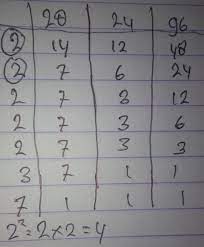 28 24 96
2 14 12 48
2 7 6 24
2 7 3 12
2 7 3 6
2 7 3 3
3 7 1 1
7 1 1 1
2²=2×2=4